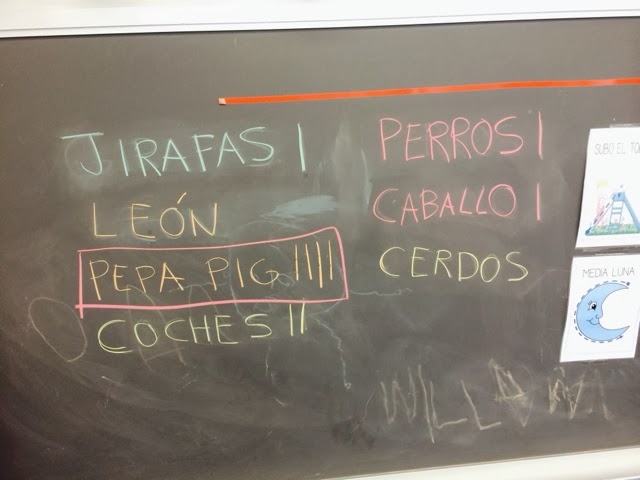 JIRAFAS |
LEÓN
PEPA PIG ||||
COCHES ||
PERROS |
CABALLO |
CERDOS
SUBO EL
MEDIA LUNA